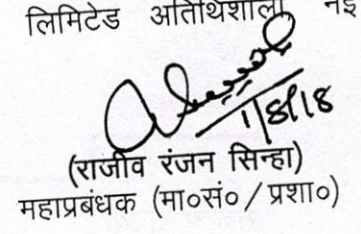 लिमिटेड अतिथिशाला नई
1/8/18
(राजीव रंजन सिन्हा)
महाप्रबंधक (मा०सं० / प्रशा०)